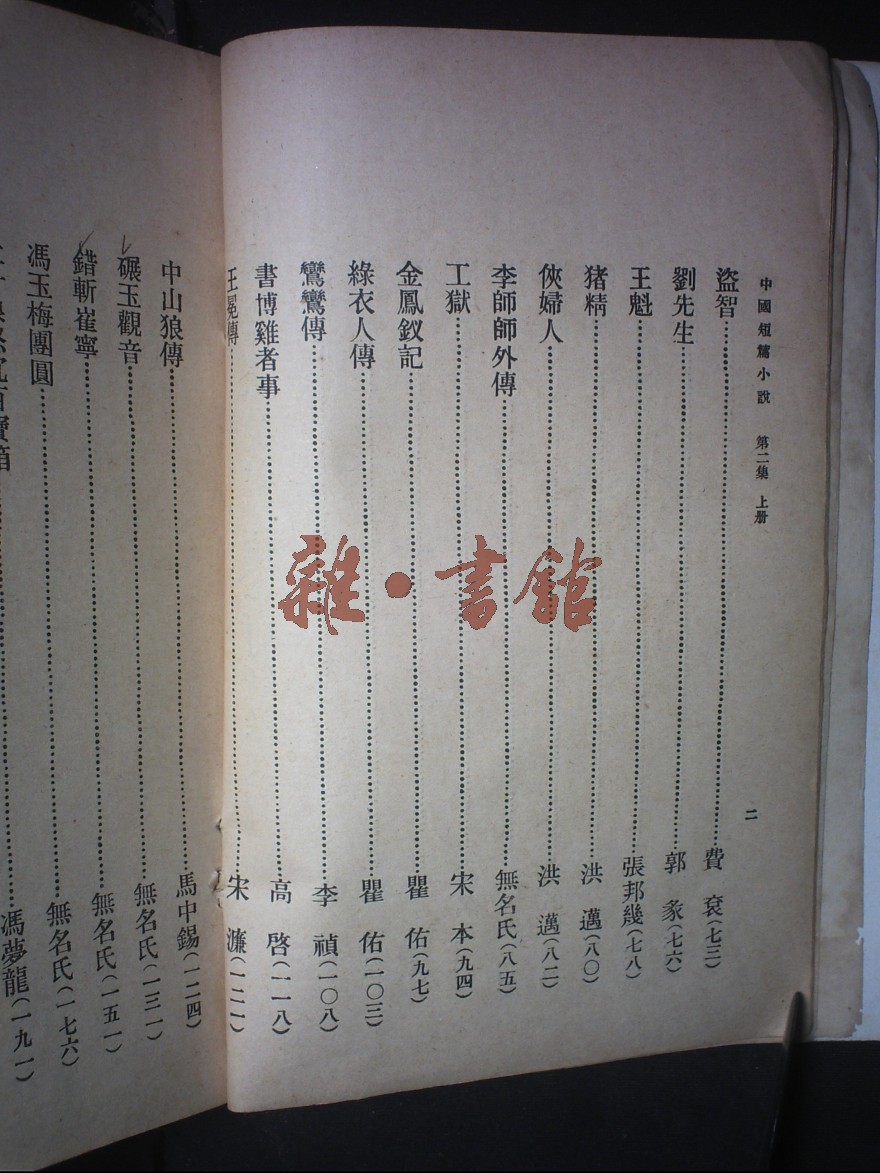 中國短篇小說 第二集 上册
二
盜智 費袞(七三)
劉先生 郭彖(七六)
王魁 張邦幾(七八)
猪精 洪邁(八〇)
俠婦人 洪邁(八二)
李師師外傳 無名氏(八五)
工獄 宋本(九四)
金鳳釵記 瞿佑(九七)
綠衣人傳 瞿佑(一〇三)
鸞鸞傳 李禎(一〇八)
書博雞者事 高啓(一一八)
王冕傳 宋濂(一二一)
中山狼傳 馬中錫(一二四)
碾玉觀音 無名氏(一三一)
錯斬崔寧 無名氏(一五一)
馮玉梅團圓 無名氏(一七六)
馮夢龍(一九一)
雜·書館